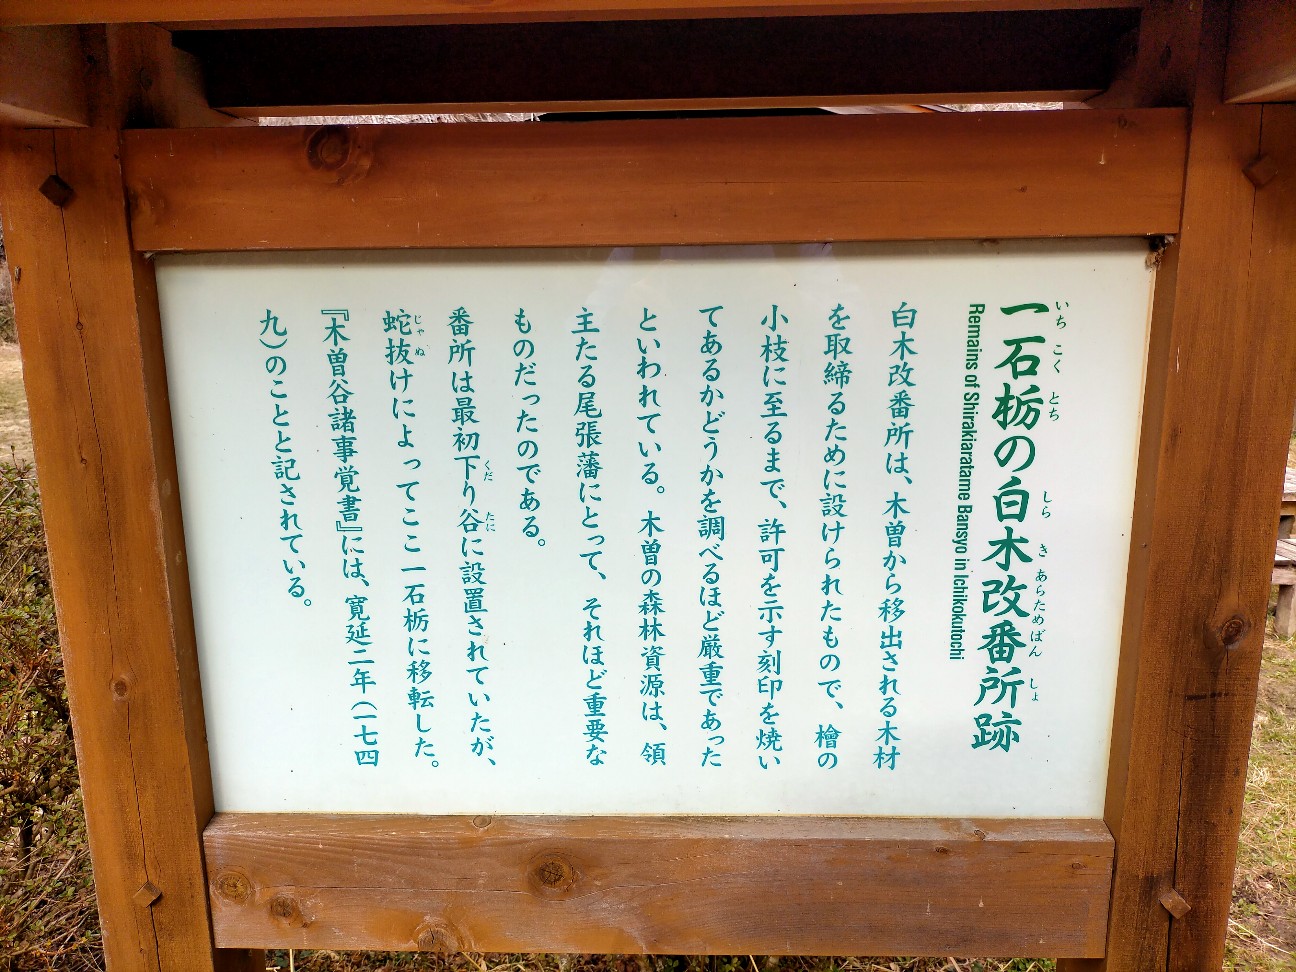 一石栃の白木改番所跡
いちこくとち しらき あらためばんしょ
Remains of Shirakiaratame Bansyo in Ichikokutochi
白木改番所は、木曽から移出される木材
を取締るために設けられたもので、檜の
小枝に至るまで、許可を示す刻印を焼い
てあるかどうかを調べるほど厳重であった
といわれている。木曽の森林資源は、領
主たる尾張藩にとって、それほど重要な
ものだったのである。
番所は最初下り谷に設置されていたが、
くだ たに
蛇抜けによってここ一石栃に移転した。
じゃぬ
『木曽谷諸事覚書』には、寛延二年(一七四
九)のことと記されている。